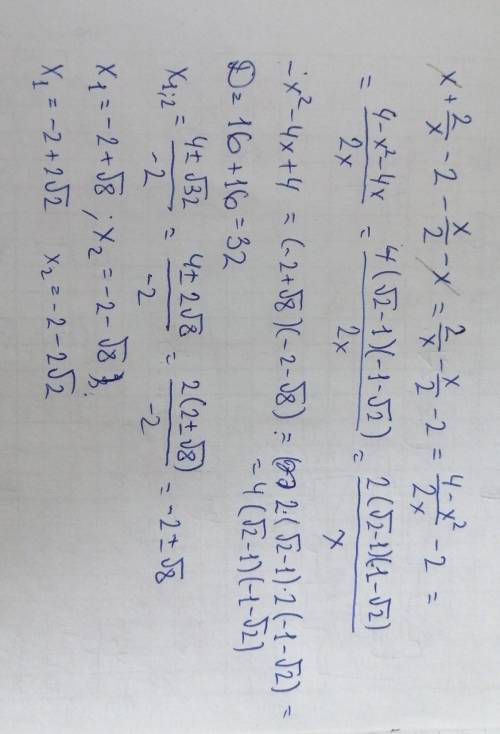 x + 2/x - 2 - x/2 - x = 2/x - x/2 - 2 = (4 - x²)/(2x) - 2 =
= (4 - x² - 4x)/(2x) = (4(√2 - 1)(-1 - √2))/(2x) = (2(√2 - 1)(-1 - √2))/x
-x² - 4x + 4 = (-2 + √8)(-2 - √8) = 2·(√2 - 1)·2(-1 - √2) =
= 4(√2 - 1)(-1 - √2)
D = 16 + 16 = 32
x₁;₂ = (4 ± √32)/(-2) = (4 ± 2√8)/(-2) = (2(2 ± √8))/(-2) = -2 ± √8
x₁ = -2 + √8 ; x₂ = -2 - √8 ;
x₁ = -2 + 2√2 x₂ = -2 - 2√2